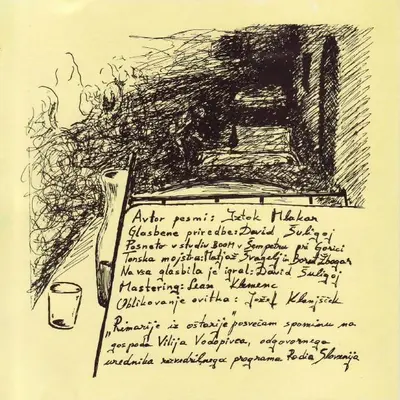 Avtor pesmi: Iztok Mlakar
Glasbene priredbe: David Šuligoj
Posneto v studiu BOOM v Šempetru pri Gorici
Tonska mojstra: Matjaž Švagelj in Borut Žbogar
Na vsa glasbila je igral: David Šuligoj
Mastering: Sean Klemenc
Oblikovanje ovitka: Jožef Klanjšček
"Rimarije iz oštarije" posvečam spominu na
gospoda Vilija Vodopivca, odgovornega
urednika razvedrilnega programa Radia Slovenija